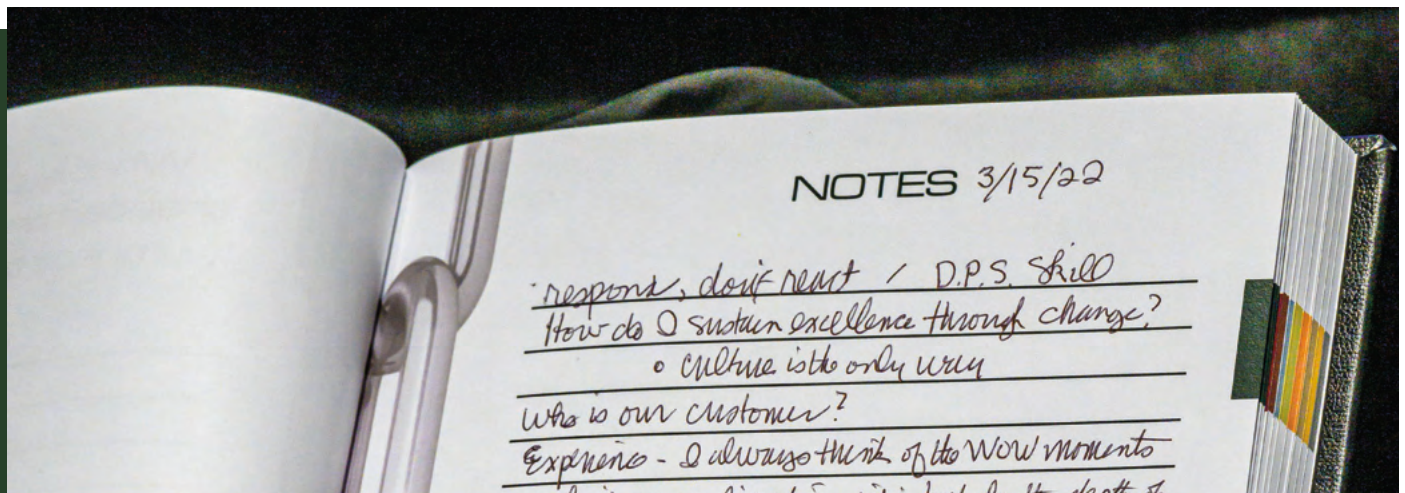 NOTES 3/15/22
respond, don't react / D.P.S. Skill
How do I sustain excellence through change?
• Culture is the only way
who is our customer?
Experience - I always think of the WOW moments